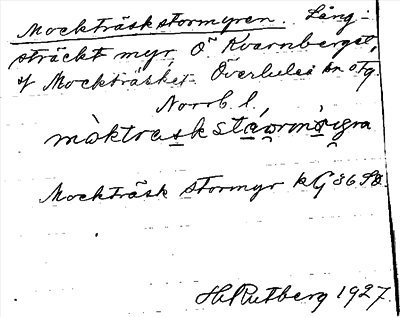 Mockträskstormyren. Lång-
sträckt myr Ö Kvarnberget,
of Mockträsket. Överluleå sn o. tg.
Norrb. l.
måktraskstáormȯ̀igra
Mockträsk stormyr kG 36 SO.
H. Rutberg 1927.